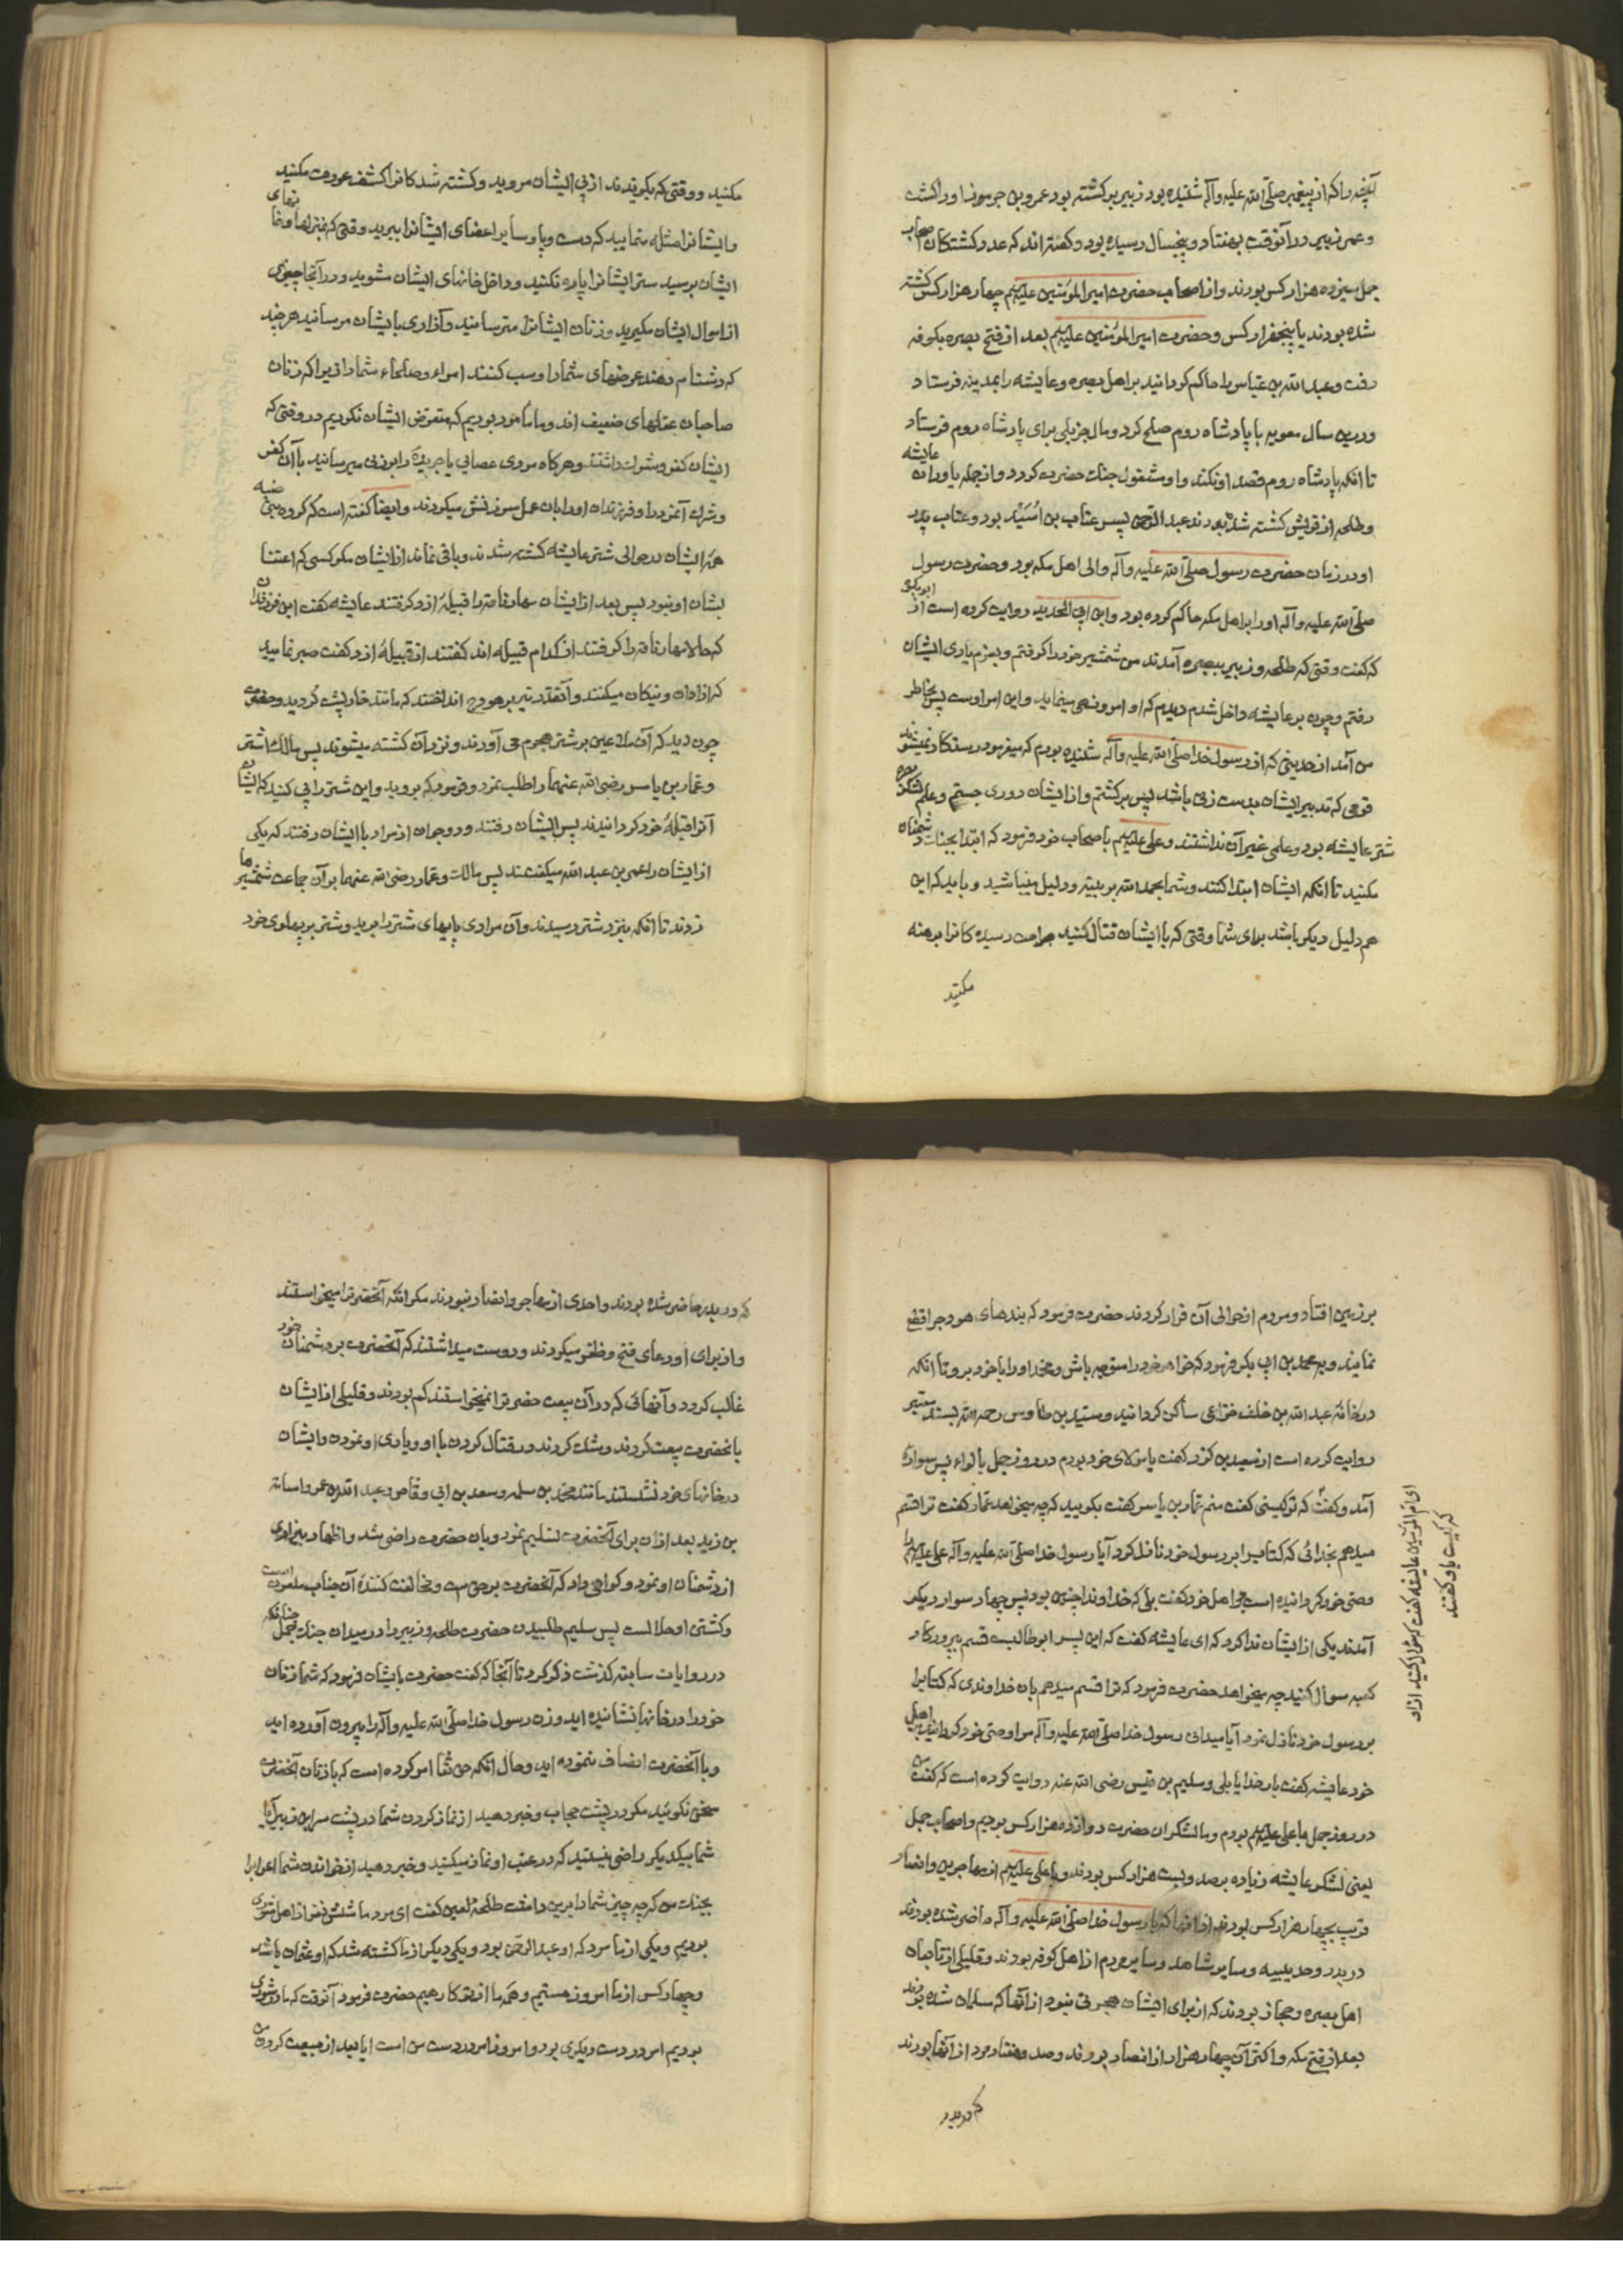 آنچه را که از پیغمبر صلّی الله علیه وآله شنیده بود زبیر برکشته بود عمرو بن جرموز اورا کشت
وعمر زبیر درآنوقت بهفتاد وپنجسال رسیده بود وکفته‌اند که عدد کشتکان اصحاب
جمل سیزده هزار کس بودند واز اصحاب حضرت امیرالمؤمنین علیه‌السلم چهار هزار کس کشته
شده بودند یا پنجهزار کس وحضرت امیرالمؤمنین علیه‌السلم بعد از فتح بصره بکوفه
رفت وعبد الله بن عباس را حاکم کردانید بر اهل بصره وعایشه را بمدینه فرستاد
ودرین سال معویه با پادشاه روم صلح کرد ومال جزیلی برای پادشاه روم فرستاد
تا انکه پادشاه روم قصد او نکند واو مشغول جنک حضرت کردد واز جمله یاوران عایشه
وطلحه از قریش کشته شده بودند عبد الرحمن پسر عتاب بن اُسَیْد بود وعتاب پدر
او در زمان حضرت رسول صلّی الله علیه وآله والی اهل مکه بود وحضرت رسول
صلّی الله علیه وآله اورا بر اهل مکه حاکم کرده بود وابن ابی الحدید روایت کرده است از ابوبکره
که کفت وقتی که طلحه وزبیر ببصره آمدند من شمشیر خود را کرفتم وبعزم یاری ایشان
رفتم وچون بر عایشه داخل شدم دیدم که او امر ونهی مینماید واین امر اوست پس بخاطر
من آمد از حدیثی که از رسول خدا صلّی الله علیه وآله شنیده بودم که میفرمود رستکار نمیشوند
قومی که تدبیر ایشان بدست زنی باشد پس برکشتم واز ایشان دوری جستم وعلم لشکر بصره
شتر عایشه بود وعلمی غیر آن نداشتند وعلی علیه‌السلم باصحاب خود فرمود که ابتدا بجنک دشمنان
مکنید تا انکه ایشان ابتدا کنند وشما بحمد الله بر بینه ودلیل میباشید وباید که این
هم دلیل دیکر باشد برای شما وقتی که با ایشان قتال کنید جراحت رسیده کانرا برهنه
مکنید
مکنید ووقتی که بکریزند از پی ایشان مروید وکشته شدکانرا کشف عورت مکنید
وایشانرا مثله منمایید که دست وپا وسایر اعضای ایشانرا ببرید وقتی که بمنزلها وخانهای
ایشان برسید ستر ایشانرا پاره نکنید وداخل خانهای ایشان مشوید ودرآنجا چیزی
از اموال ایشان مکیرید وزنان ایشانرا مترسانید وآزاری بایشان مرسانید هرچند
که دشنام دهند عرضهای شمارا وسب کنند امراء وصلحاء شمارا زیرا که زنان
صاحبان عقلهای ضعیف اند وما مامور بودیم که متعرض ایشان نکردیم در وقتی که
ایشان کفر وشرک داشتند وهرکاه مردی عصایی یا جریدهٔ را بر زنی میرسانید با آن کفر
وشرک آنمرد را وفرزندان اورا بان عمل سرزنش میکردند وایضا کفته است که کروه بنی ضبه
همه ایشان در حوالی شتر عایشه کشته شدند وباقی نماند از ایشان مکر کسی که اعتنا
بشان او نبود پس بعد از ایشان مهار ناقه را قبیلهٔ ازد کرفتند عایشه کفت
که حالا مهار ناقه را کرفتند از کدام قبیله اند کفتند از قبیلهٔ ازد کفت صبر نمایید
که ازادان ونیکان میکنند وآنقدر تیر بر هودج انداختند که مانند خارپشت کردید وحضرت
چون دید که آن ملاعین بر شتر هجوم می آورند ونزد آن کشته میشوند پس مالک اشتر
وعمار بن یاسر رضی الله عنهما را طلب نمود وفرمود که بروید واین شتر را پی کنید که ایشان
آنرا قبلهٔ خود کردانیدند پس ایشان رفتند ودو جوان از مراد با ایشان رفتند که یکی
از ایشان را عمر بن عبد الله میکفتند پس مالک وعمار رضی الله عنهما بر آن جماعت شمشیرها
زدند تا انکه بنزد شتر رسیدند وآن مرادی پایهای شتر را برید وشتر بر پهلوی خود
بر زمین افتاد ومردم از حوالی آن فرار کردند حضرت فرمود که بندهای هودج را قطع
نمایند وبه محمد بن ابی بکر فرمود که خواهر خود را متوجه باش ومحمد اورا با خود برد تا انکه
در خانهٔ عبد الله بن خلف خزاعی ساکن کردانید وسید بن طاوس رحمه الله بسند معتبر
روایت کرده است از سعید بن کرز کفت با مولای خود بودم در روز جمل با لواء پس سوارهٔ
آمد وکفت که تو کیستی کفت منم عمار بن یاسر کفت بکویید که چه میخواهد عمار کفت ترا قسم
ای ام المؤمنین عایشه کفت که سؤال کنید ازاو
که کیست با او کفتند
میدهم بخدائی که کتابرا بر رسول خود نازل کرد آیا رسول خدا صلّی الله علیه وآله علی علیه‌السلم را
وصی خود کردانیده است بر اهل خود کفت بلی که خداوندا چنین بود پس چهار سوار دیکر
آمدند یکی از ایشان ندا کرد که ای عایشه کفت که این پسر ابوطالبست قسم بپروردکار
کعبه سوال کنید چه میخواهد حضرت فرمود که ترا قسم میدهم بان خداوندی که کتابرا
بر رسول خود نازل نمود آیا میدانی رسول خدا صلّی الله علیه وآله مرا وصی خود کردانید بر اهل
خود عایشه کفت بار خدایا بلی وسلیم بن قیس رضی الله عنه روایت کرده است که کفت من
در روز جمل با علی علیه‌السلم بودم وما لشکران حضرت دوازده هزار کس بودیم واصحاب جمل
یعنی لشکر عایشه زیاده بر صد وبیست هزار کس بودند وبا علی علیه‌السلم از مهاجرین وانصار
قریب بچهار هزار کس بودند از انها که با رسول خدا صلّی الله علیه وآله حاضر شده بودند
در بدر وحدیبیه وسایر مشاهد وسایر مردم از اهل کوفه بودند وقلیلی از تابعان
اهل بصره وحجاز بودند که از برای ایشان هجرتی نبود از آنها که مسلمان شده بودند
بعد از فتح مکه واکثر آن چهار هزار از انصار بودند وصد وهفتاد مرد از آنها بودند
که در بدر
که در بدر حاضر شده بودند واحدی از مهاجر وانصار نبودند مکر انکه آنحضرترا میخواستند
واز برای او دعای فتح وظفر میکردند ودوست میداشتند که آنحضرت بر دشمنان خود
غالب کردد وآنهائی که در آن بیعت حضرترا نمیخواستند کم بودند وقلیلی از ایشان
با آنحضرت بیعت کردند وشک کردند در قتال کردن با او ویاری او نمودن وایشان
در خانهای خود نشستند مانند محمد بن سلمه وسعد بن ابی وقاص وعبد الله بن عمر واسامه
بن زید بعد ازان برای آنحضرت تسلیم نمود وبان حضرت راضی شد واظهار بیزاری
از دشمنان او نمود وکواهی داد که آنحضرت بر حق است ومخالفت کنندهٔ آن جناب ملعون است
وکشتن او حلالست پس سلیم طلبیدن حضرت طلحه وزبیر را در میدان جنک جمل چنانکه
در روایات سابقه کذشت ذکر کرد تا آنجا که کفت حضرت بایشان فرمود که شما زنان
خود را در خانها نشانیده اید وزن رسول خدا صلّی الله علیه وآله را بیرون آورده اید
وبا آنحضرت انصاف ننموده اید وحال انکه حق تعا امر کرده است که با زنان آنحضرت
سخن نکوئید مکر در پشت حجاب وخبر دهید از نماز کردن شما در پشت سر ابن زبیر آیا
شما بیکدیکر راضی نیستید که در عقب او نماز میکنید وخبر دهید از خواندن شما اعرابرا
بجنک من که چه چیز شمارا برین داشت طلحهٔ لعین کفت ای مرد ما شش نفر از اهل شوری
بودیم ویکی از ما مرد که او عبدالرحمن بود ویکی دیکر از ما کشته شد که او عثمان باشد
وچهار کس از ما امروز هستیم وهمه ما از تو کارهیم حضرت فرمود آنوقت که ما در شوری
بودیم امر در دست دیکری بود وامروز امر در دست من است ایا بعد از بیعت کردن من